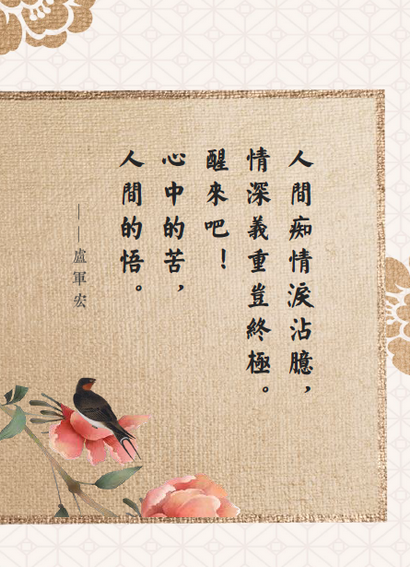 人間痴情淚沾臆，
情深義重豈終極。
醒來吧！
心中的苦，
人間的悟。
——盧軍宏